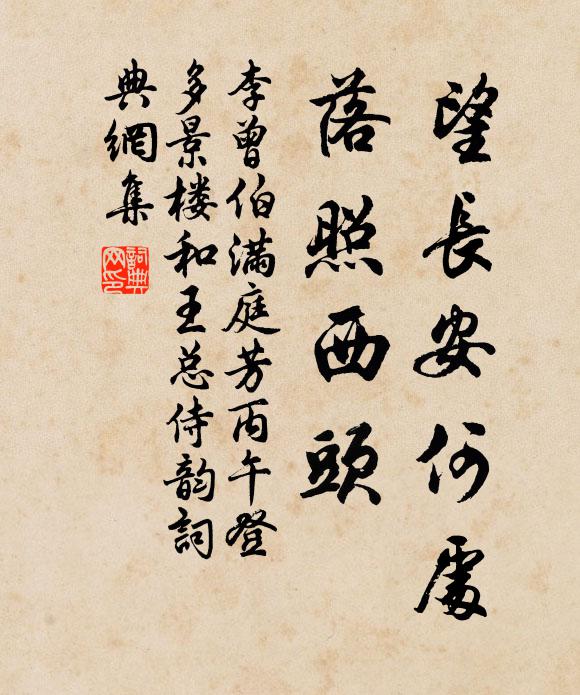 望長安何處
落照西頭
李曾伯满庭芳丙午登
多景楼和王总侍韵詞
典網集
詞典网印